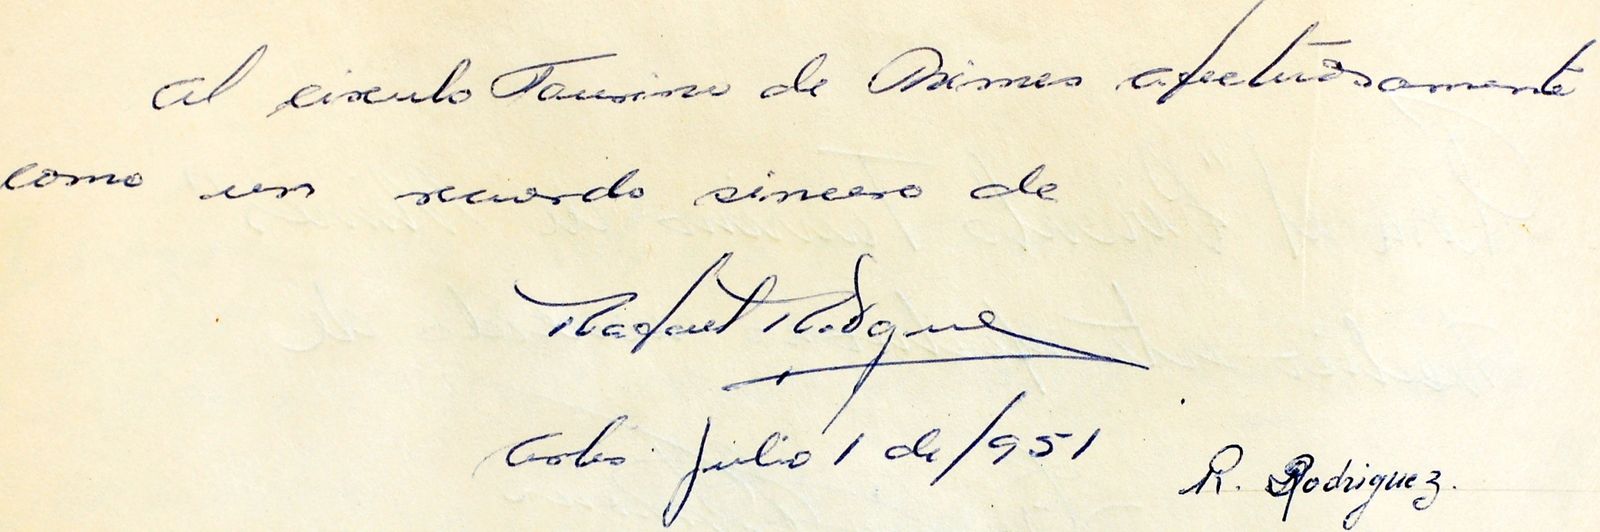 Al circulo Taurino de Nimes afectuosamente
como un recuerdo sincero de
Rafael Rodgue
Arles Julio 1 de 1951
R. Rodriguez.